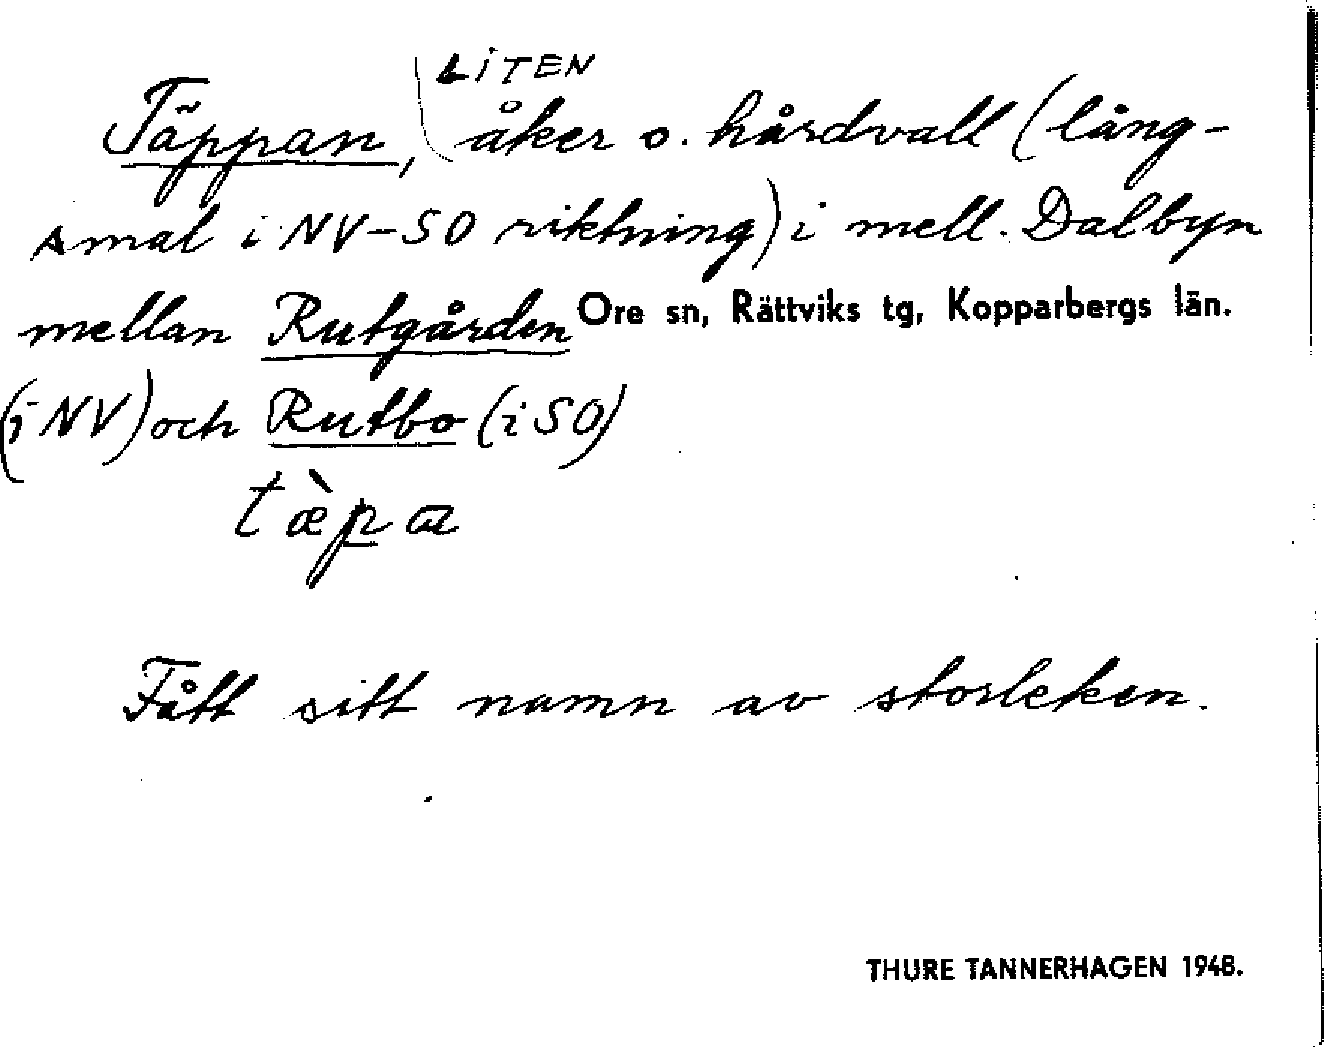 Täppan, LITEN åker o. hårdvall (lång-
smal i NV-SO riktning) i mell. Dalbyn
mellan Rutgården Ore sn, Rättviks tg, Kopparbergs län.
(i NV) och Rutbo (i SO)
tæ̀pa
Fått sitt namn av storleken.
THURE TANNERHAGEN 1948.